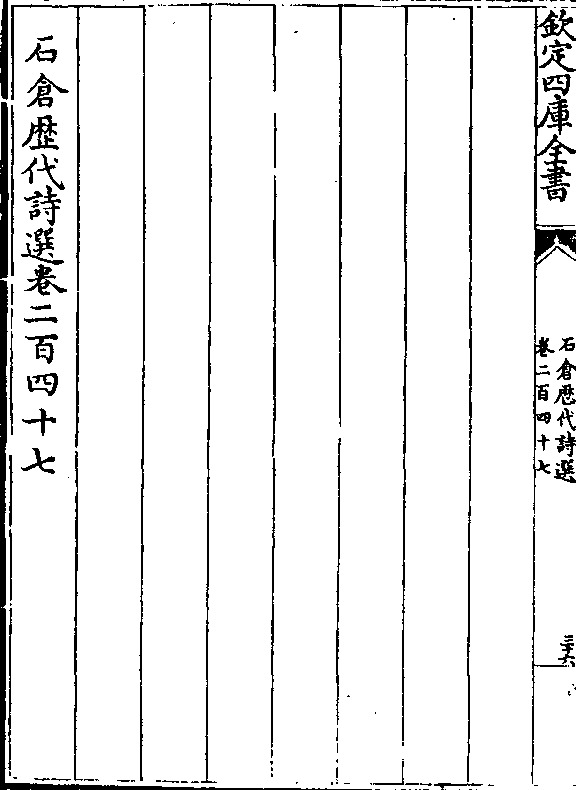 欽定四庫全書
石倉歷代詩選
卷二百四十七
三十六
石倉歷代詩選卷二百四十七